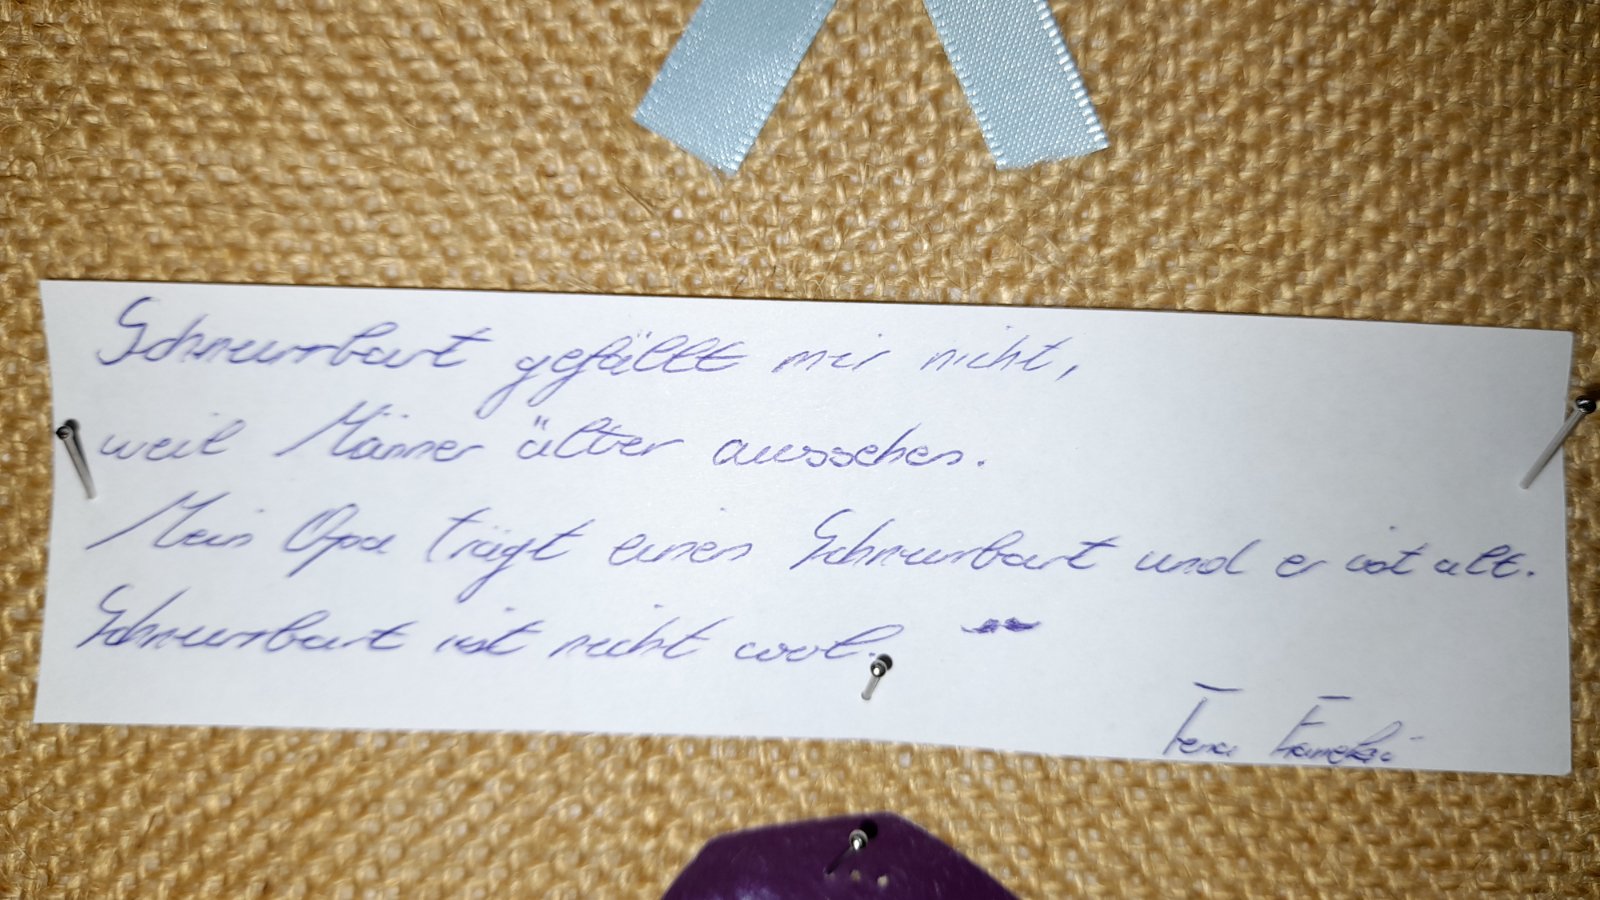 Schnurrbart gefällt mir nicht,
weil Männer älter aussehen.
Mein Opa trägt einen Schnurrbart und er ist alt.
Schnurrbart ist nicht cool.